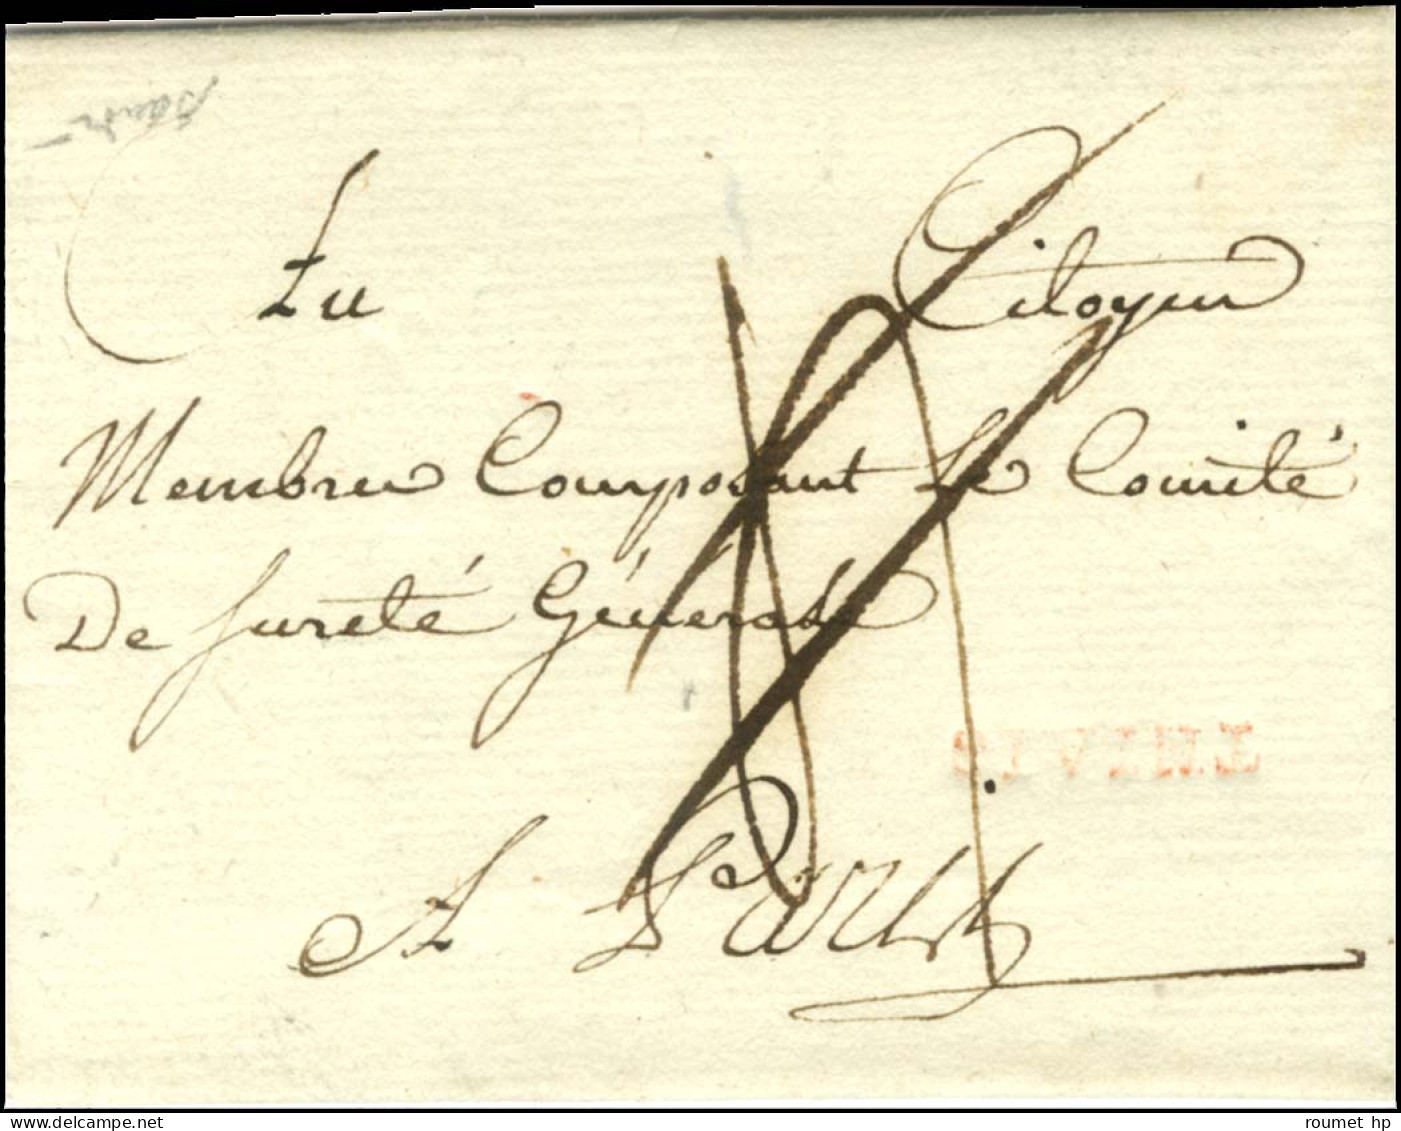 Au Citoyen
Membres Composant Le Comité
De Sureté Générale
A Paris
roumet hp